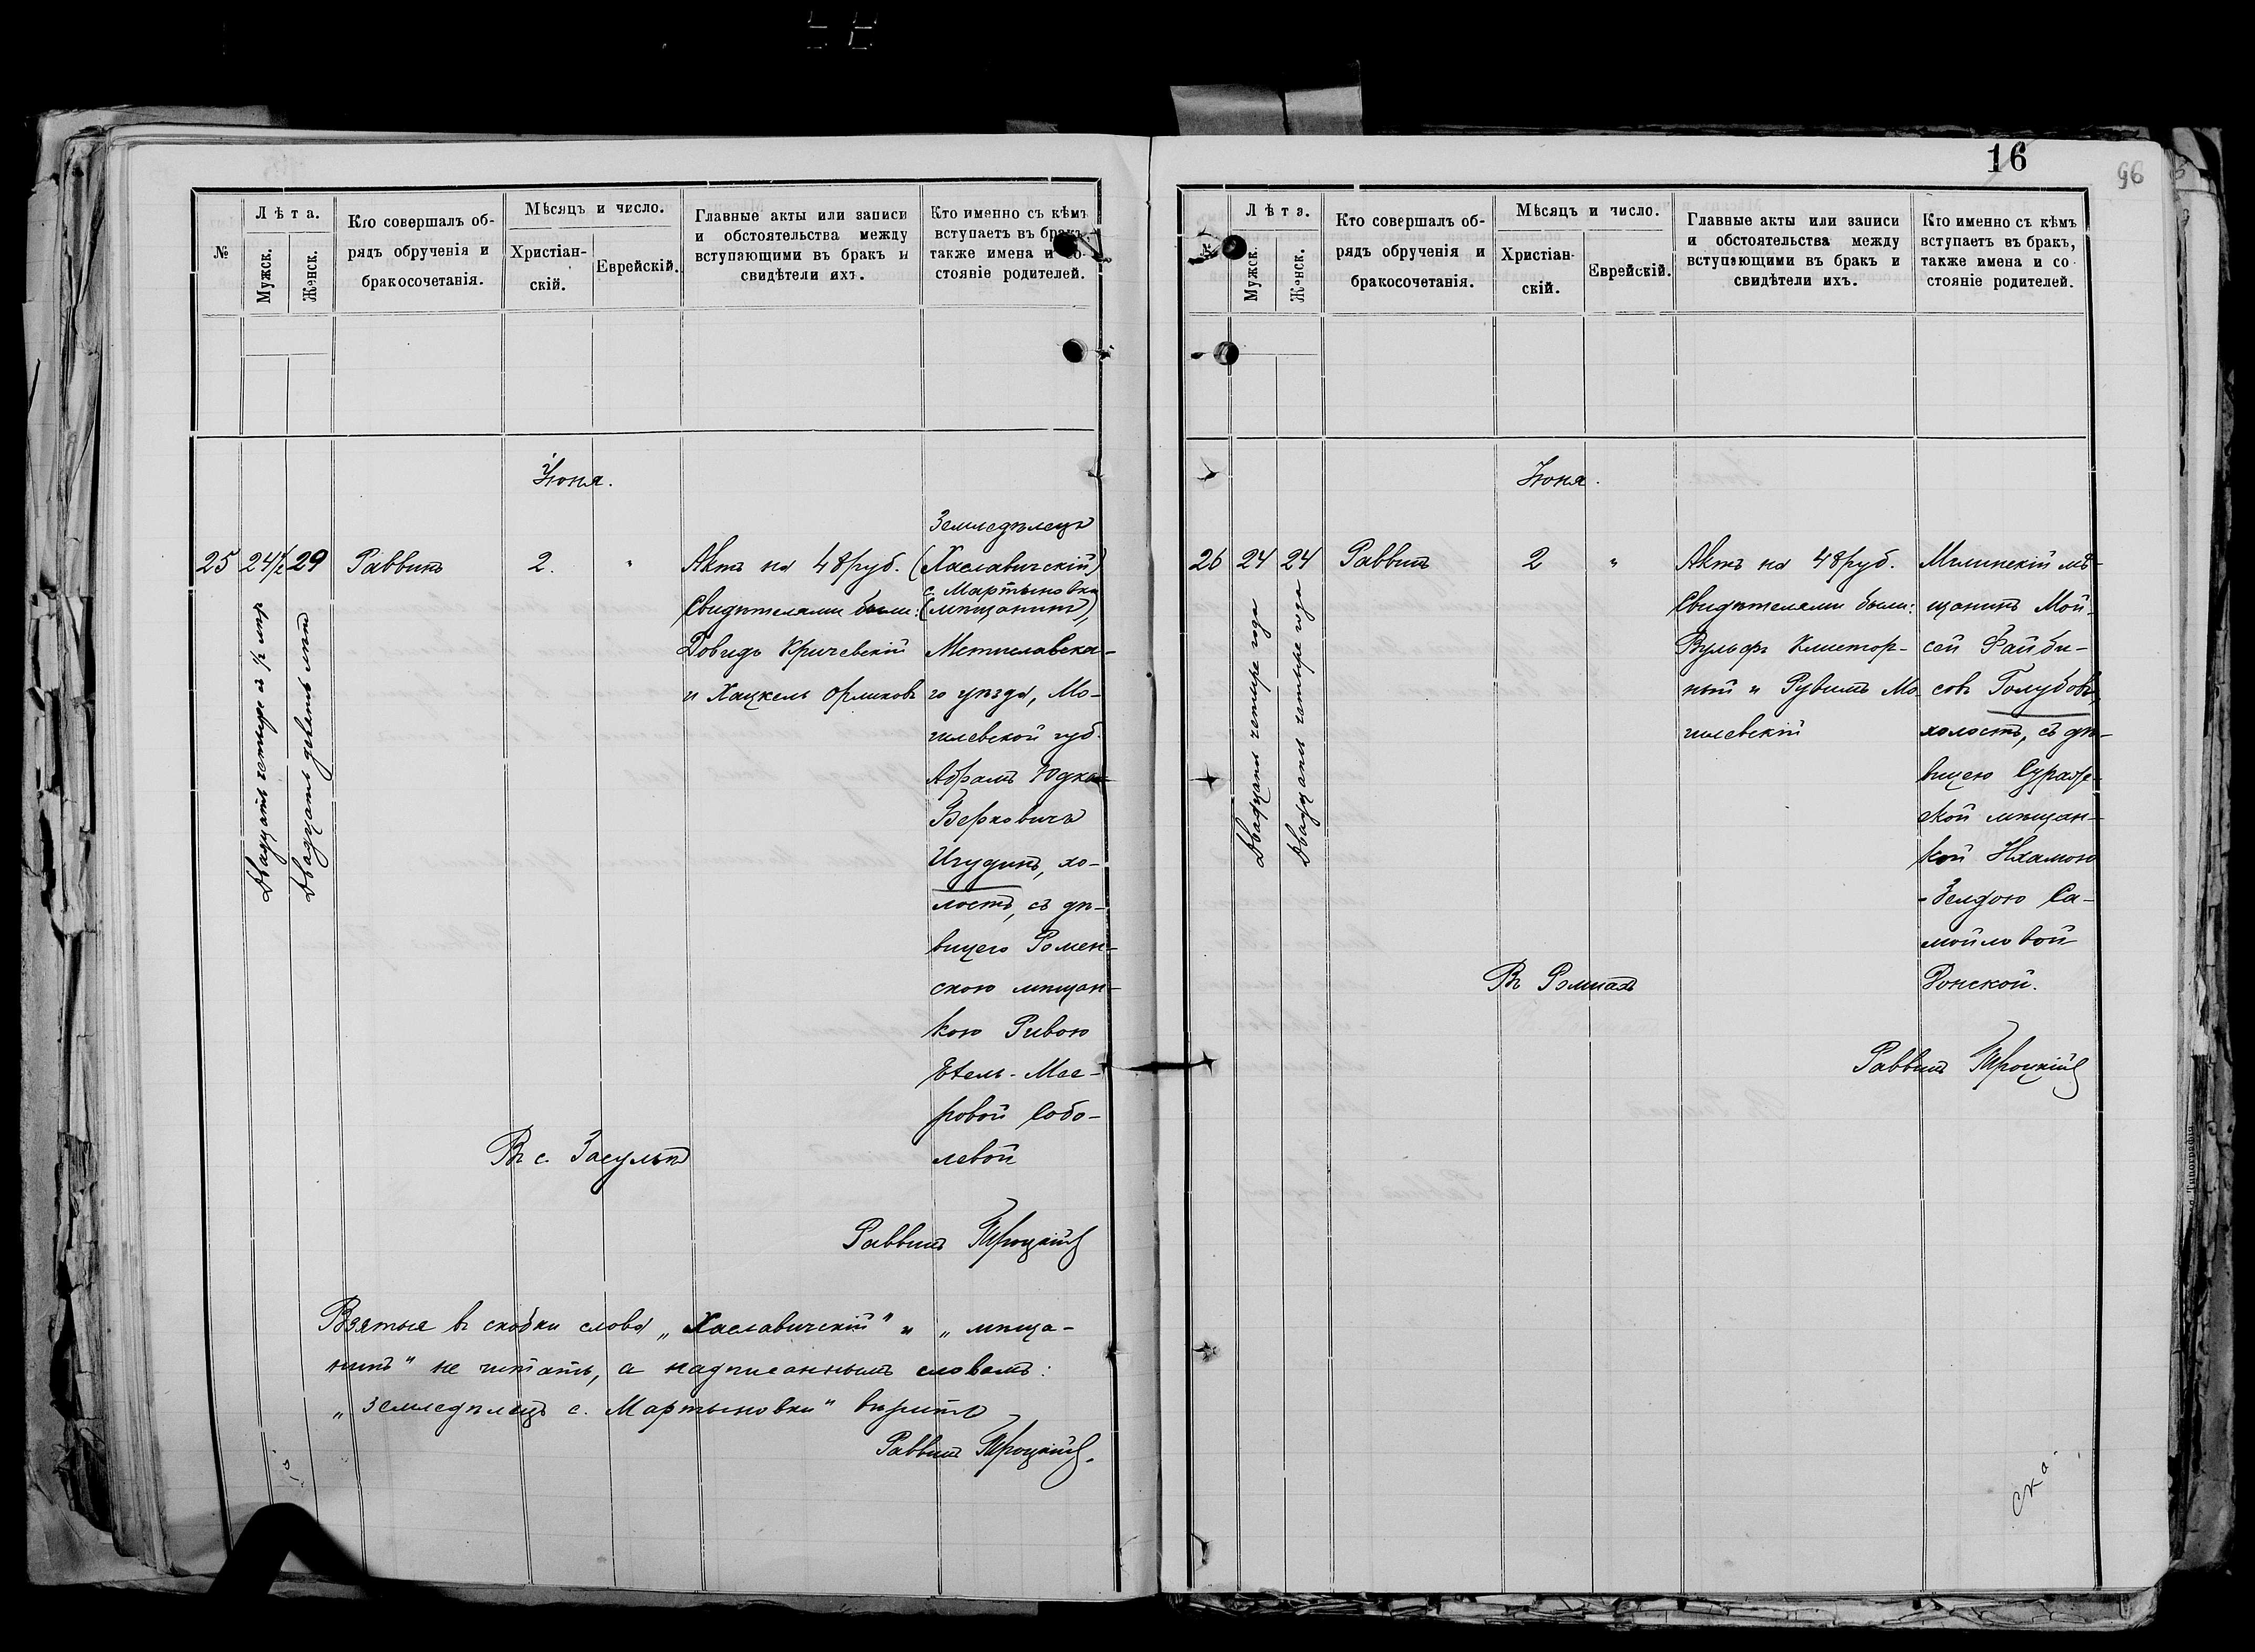 16
96
№
Лѣта.
Мужск.
Женск.
Кто совершалъ об-
рядъ обрученія и
бракосочетанія.
Мѣсяцъ и число.
Христіан-
скій.
Еврейскій.
Главные акты или записи
и обстоятельства между
вступающими въ бракъ и
свидѣтели ихъ.
Кто именно съ кѣмъ
вступаетъ въ бракъ,
также имена и со-
стояніе родителей.
Іюня.
25
24½
29
Двадцать четыре съ ½
Двадцать девять лѣтъ
Раввинъ
2.
"
Актъ на 48 руб.
Свидѣтелями были:
Довидъ Кричевскій
и Хацкель Орликовъ
Земледѣлецъ
(Хаславичскій)
с. Мартыновки
(мѣщанинъ),
Мстиславска-
го уѣзда, Мо-
гилевской губ.
Абрамъ Юдка
Берковичъ
Игудинъ, хо-
лостъ, съ дѣ-
вицею Ромен-
скою мѣщан-
кою Ривою
Етель-Мее-
ровой Собо-
левой
Въ с. Засульѣ
Раввинъ Троцкій
Взятые въ скобки слова „Хаславичскій" и „мѣща-
нинъ" не читать, а надписаннымъ словамъ:
„земледѣлецъ с. Мартыновки" вѣрить
Раввинъ Троцкій.
№
Лѣта.
Мужск.
Женск.
Кто совершалъ об-
рядъ обрученія и
бракосочетанія.
Мѣсяцъ и число.
Христіан-
скій.
Еврейскій.
Главные акты или записи
и обстоятельства между
вступающими въ бракъ и
свидѣтели ихъ.
Кто именно съ кѣмъ
вступаетъ въ бракъ,
также имена и со
стояніе родителей.
Іюня.
26
24
24
Двадцать четыре года
Двадцать четыре года
Раввинъ
2
"
Актъ на 48 руб.
Свидѣтелями были:
Вульфъ Клистор-
ный и Рувимъ Мо
гилевскій
Мглинскій мѣ-
щанинъ Мой-
сей Файби-
совъ Голубовъ,
холостъ, съ дѣ-
вицею Сураж-
ской мѣщан-
кой Нхамою
-Зелдою Са-
мойловой
Ронской.
Въ Ромнахъ
Раввинъ Троцкій
ска
Типографія